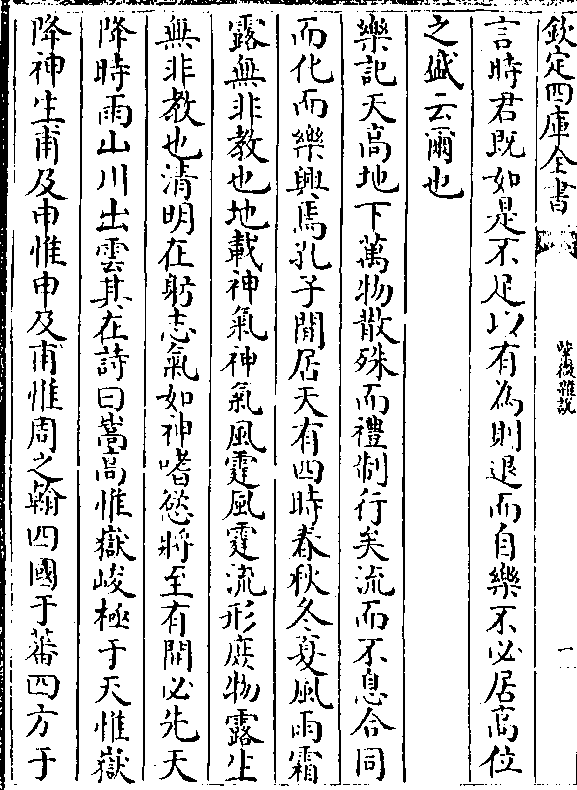 欽定四庫全書
紫微雜說
一
言時君既如是不足以有為則退而自樂不必居高位
之盛云爾也
樂記天高地下萬物散殊而禮制行矣流而不息合同
而化而樂興焉孔子閒居天有四時春秋冬夏風雨霜
露無非教也地載神氣神氣風霆風霆流形庶物露生
無非教也清明在躬志氣如神嗜慾將至有開必先天
降時雨山川出雲其在詩曰嵩高惟嶽峻極于天惟嶽
降神生甫及申惟申及甫惟周之翰四國于蕃四方于